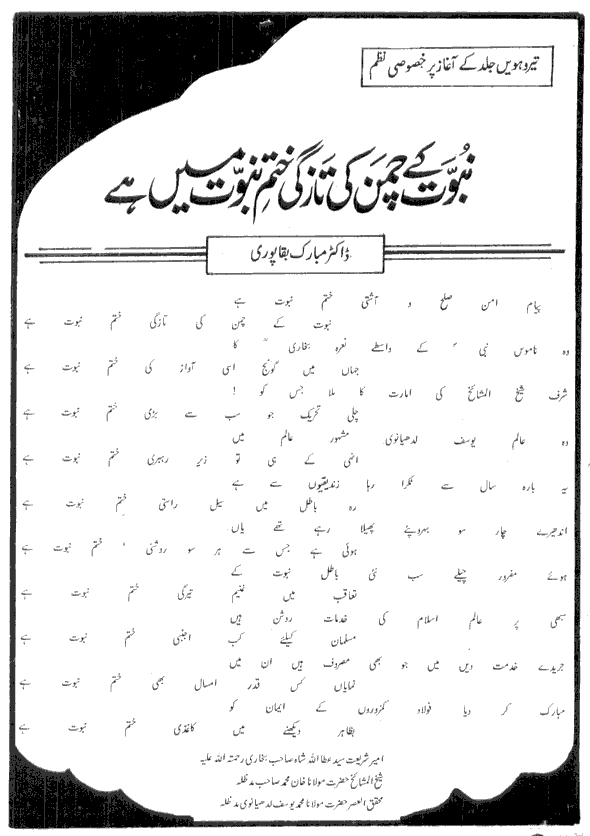 تیرہویں جلد کے آغاز پر خصوصی نظم
نبوّت کے چمن کی تازگی ختم نبوّت میں ہے
ڈاکٹر مبارک بقاپوری
پیام امن صلح و آشتی ختم نبوت ہے
نبوت کے چمن کی تازگی ختم نبوت ہے
وہ ناموس نبی ؐ کے واسطے نعرہ بخاری ؒ کا
جہاں میں گونج اسی آواز کی ختم نبوت ہے
شرف شیخ المشائخ کی امارت کا ملا جس کو !
چلی تحریک جو سب سے بڑی ختم نبوت ہے
وہ عالم یوسف لدھیانوی مشہور عالم میں
انہی کے ہی تو زیر رہبری ختم نبوت ہے
یہ بارہ سال سے ٹکرا رہا زندیقیوں سے ہے
رہ باطل میں سیل راستی ختم نبوت ہے
اندھیرے چار سو بہروپئے پھیلا رہے تھے یاں
ہوئی ہے جس سے ہر سو روشنی ' ختم نبوت ہے
ہوئے مفرور چیلے سب نئی باطل نبوت کے
تعاقب میں غنیم تیرگی ختم نبوت ہے
سبھی پر عالم اسلام کی خدمات روشن ہیں
مسلمان کیلئے کب اجنبی ختم نبوت ہے
جریدے خدمت دیں میں جو بھی مصروف ہیں ان میں
نمایاں کس قدر امسال بھی ختم نبوت ہے
مبارک کر دیا فولاد کمزوروں کے ایمان کو
بظاہر دیکھنے میں کاغذی ختم نبوت ہے
امیر شریعت سید عطا اللہ شاہ صاحب بخاری رحمتہ اللہ علیہ
شیخ المشائخ حضرت مولانا خان محمد صاحب مدظلہ
محقق العصر حضرت مولانا محمد یوسف لدھیانوی مدظلہ